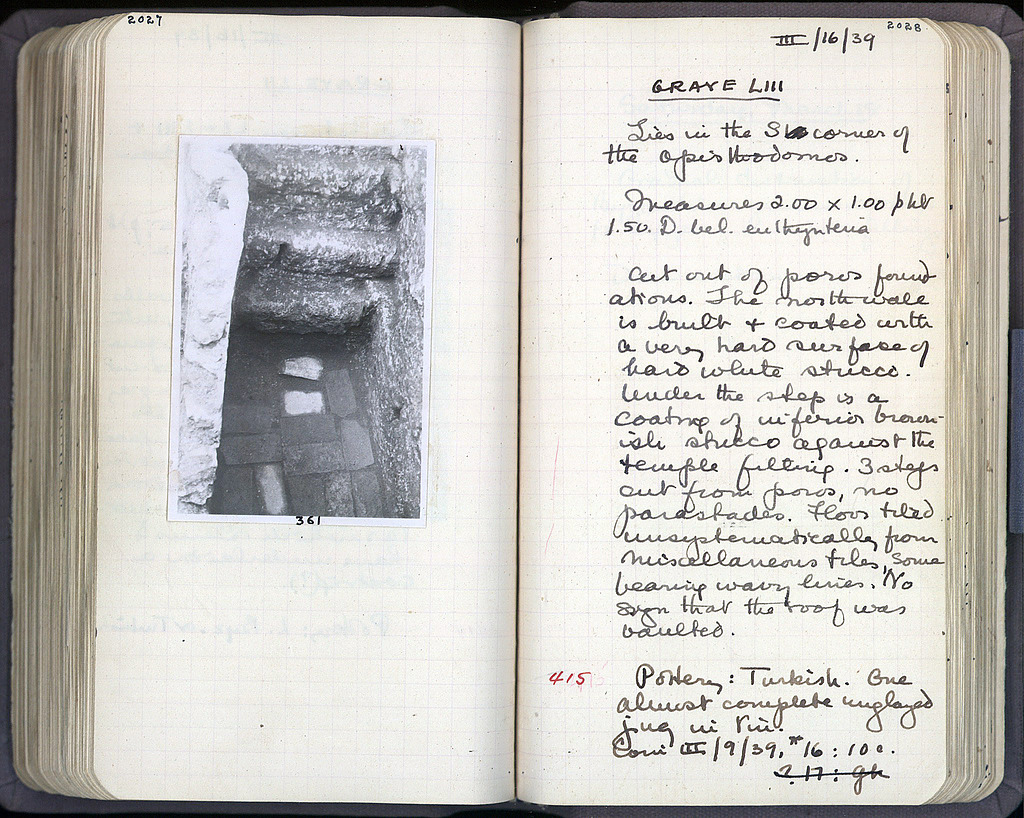 2027
361
2028
III/16/39
GRAVE LIII
Lies in the S corner of
the opisthodomos.
Measures 2.00 x 1.00
1.50. D. bel. euthynteria
Cut out of poros found-
ations. The north wall
is built + coated with
a very hard surface of
hard white stucco.
Under the step is a
coating of inferior brown-
ish stucco against the
temple filling. 3 steps
cut from poros, no
parastades. Floor tiled
unsystematically from
miscellaneous tiles, some
bearing wavy lines. No
sign that the roof was
vaulted.
415 Pottery: Turkish. One
almost complete unglazed
jug in
Coin III/9/39, #16: 10c.
? 17: Gk